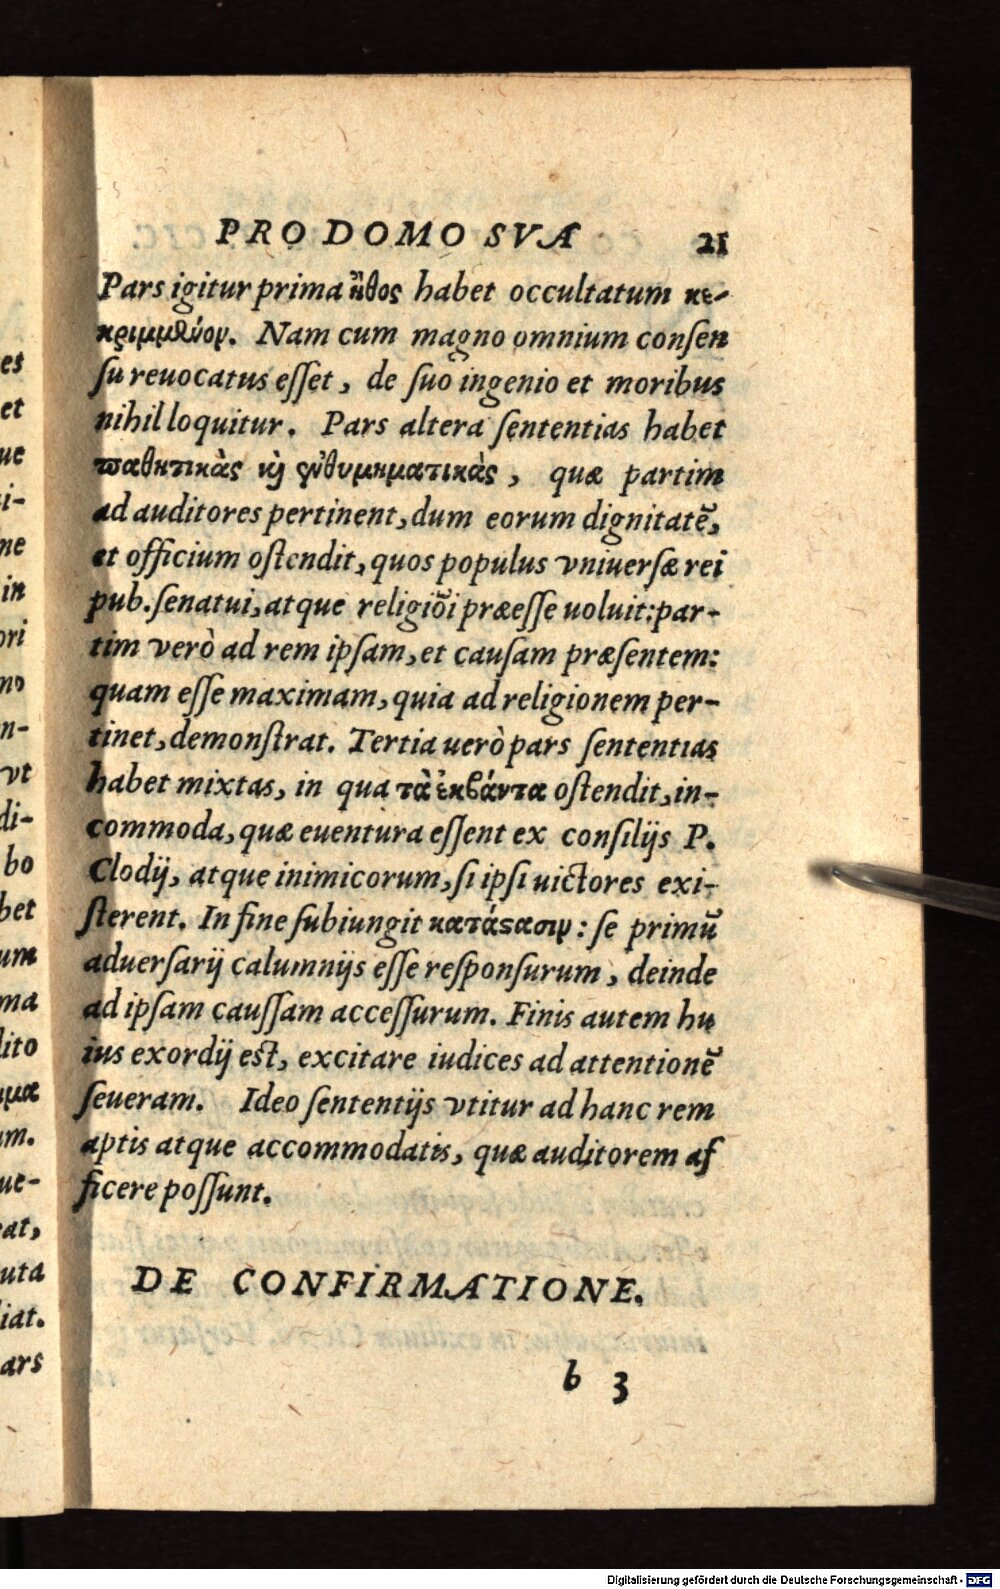 PRO DOMO SVA 21
Pars igitur prima ἦθος habet occultatum κε-
κριμμένον. Nam cum magno omnium consen
su reuocatus esset, de suo ingenio et moribus
nihil loquitur. Pars altera sententias habet
παθητικὰς καὶ ἐνθυμηματικὰς, quæ partim
ad auditores pertinent, dum eorum dignitatē,
et officium ostendit, quos populus vniuersæ rei
pub. senatui, atque religiōi præesse uoluit: par-
tim verò ad rem ipsam, et causam præsentem:
quam esse maximam, quia ad religionem per-
tinet, demonstrat. Tertia uerò pars sententias
habet mixtas, in qua τὰ ἐκβάντα ostendit, in-
commoda, quæ euentura essent ex consilijs P.
Clodij, atque inimicorum, si ipsi uictores exi-
sterent. In fine subiungit κατάστασιν: se primū
aduersarij calumnijs esse responsurum, deinde
ad ipsam caussam accessurum. Finis autem hu
ius exordij est, excitare iudices ad attentionē
seueram. Ideo sententijs vtitur ad hanc rem
aptis atque accommodatis, quæ auditorem af
ficere possunt.
DE CONFIRMATIONE.
b 3
et
et
ue
i-
ne
in
ori
no
n-
vt
di-
bo
bet
um
ma
dito
μμα
um.
ue-
eat,
uta
liat.
ars
Digitalisierung gefördert durch die Deutsche Forschungsgemeinschaft - DFG